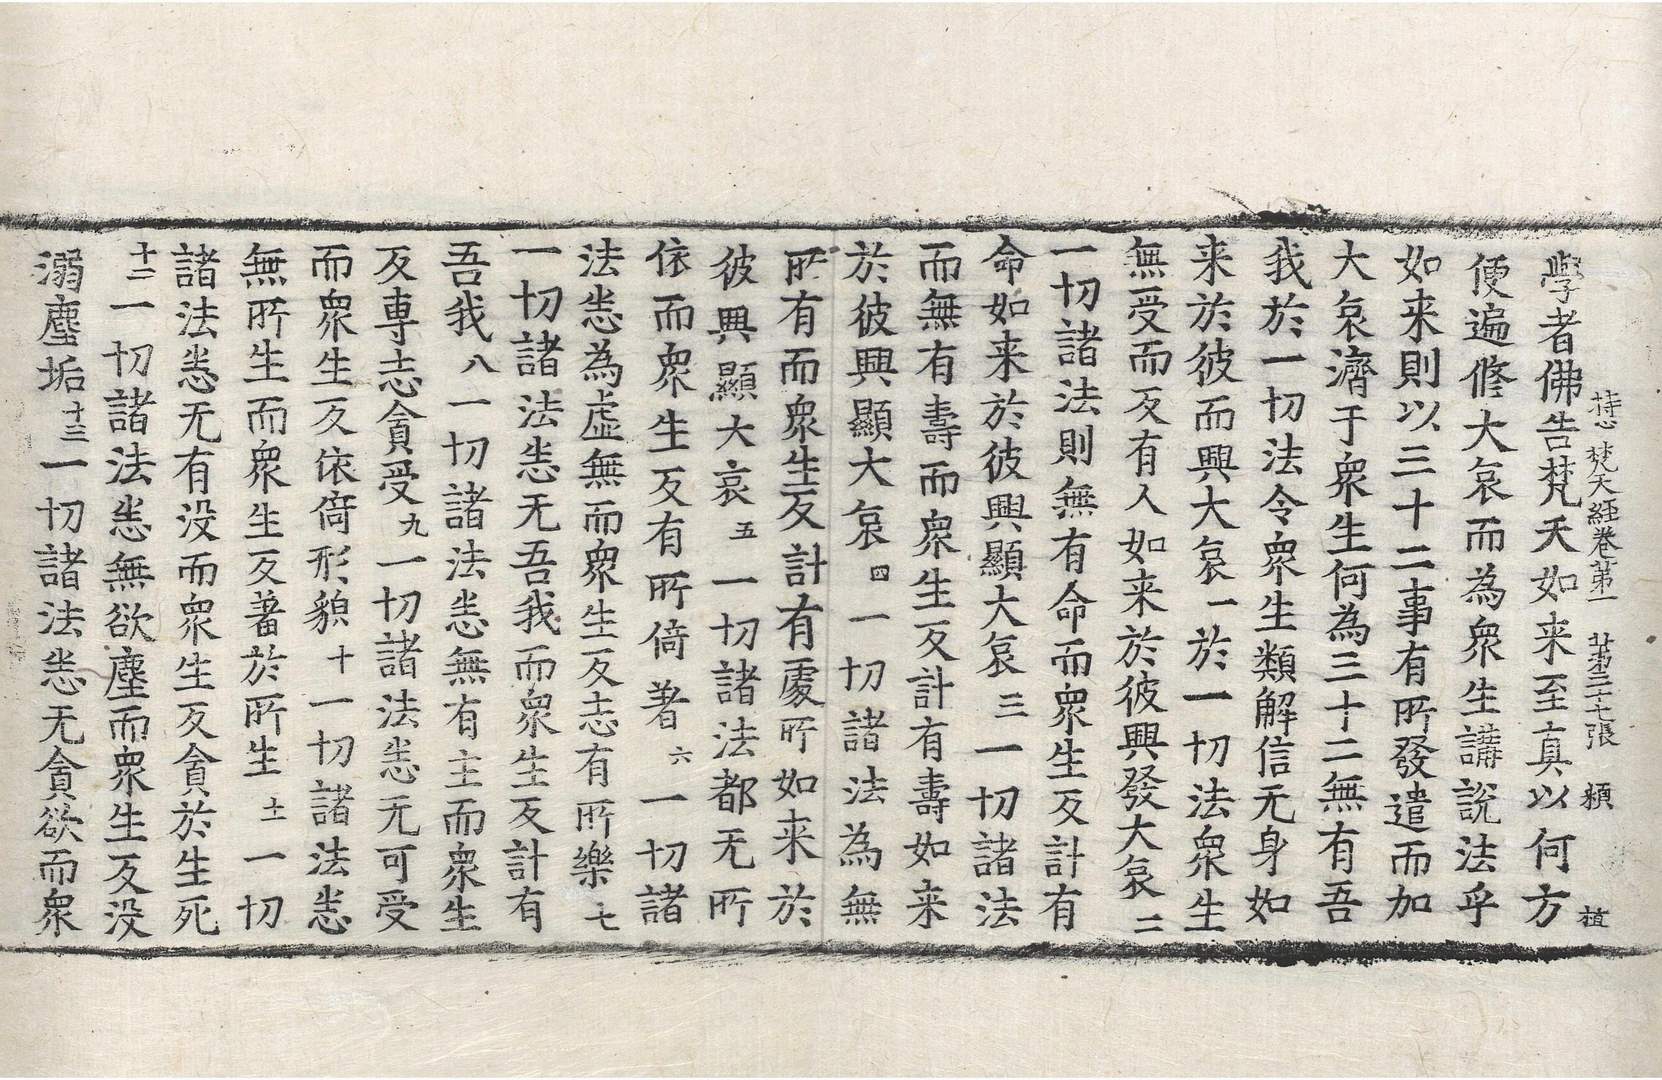 持心梵天經卷第一 第二十七張 頬 植
學者佛告梵天如来至真以何方
便遍修大哀而為衆生講說法乎
如来則以三十二事有所發遣而加
大哀濟于衆生何為三十二無有吾
我於一切法令衆生類解信无身如
来於彼而興大哀一於一切法衆生
無受而反有人如来於彼興發大哀二
一切諸法則無有命而衆生反計有
命如来於彼興顯大哀三一切諸法
而無有壽而衆生反計有壽如来
於彼興顯大哀四一切諸法為無
所有而衆生反計有處所如来於
彼興顯大哀五一切諸法都无所
依而衆生反有所倚著六一切諸
法悉為虛無而衆生反志有所樂七
一切諸法悉无吾我而衆生反計有
吾我八一切諸法悉無有主而衆生
反專志貪受九一切諸法悉无可受
而衆生反依倚形貌十一切諸法悉
無所生而衆生反著於所生十一一切
諸法悉无有没而衆生反貪於生死
十二一切諸法悉無欲塵而衆生反没
溺塵垢十三一切諸法悉无貪欲而衆